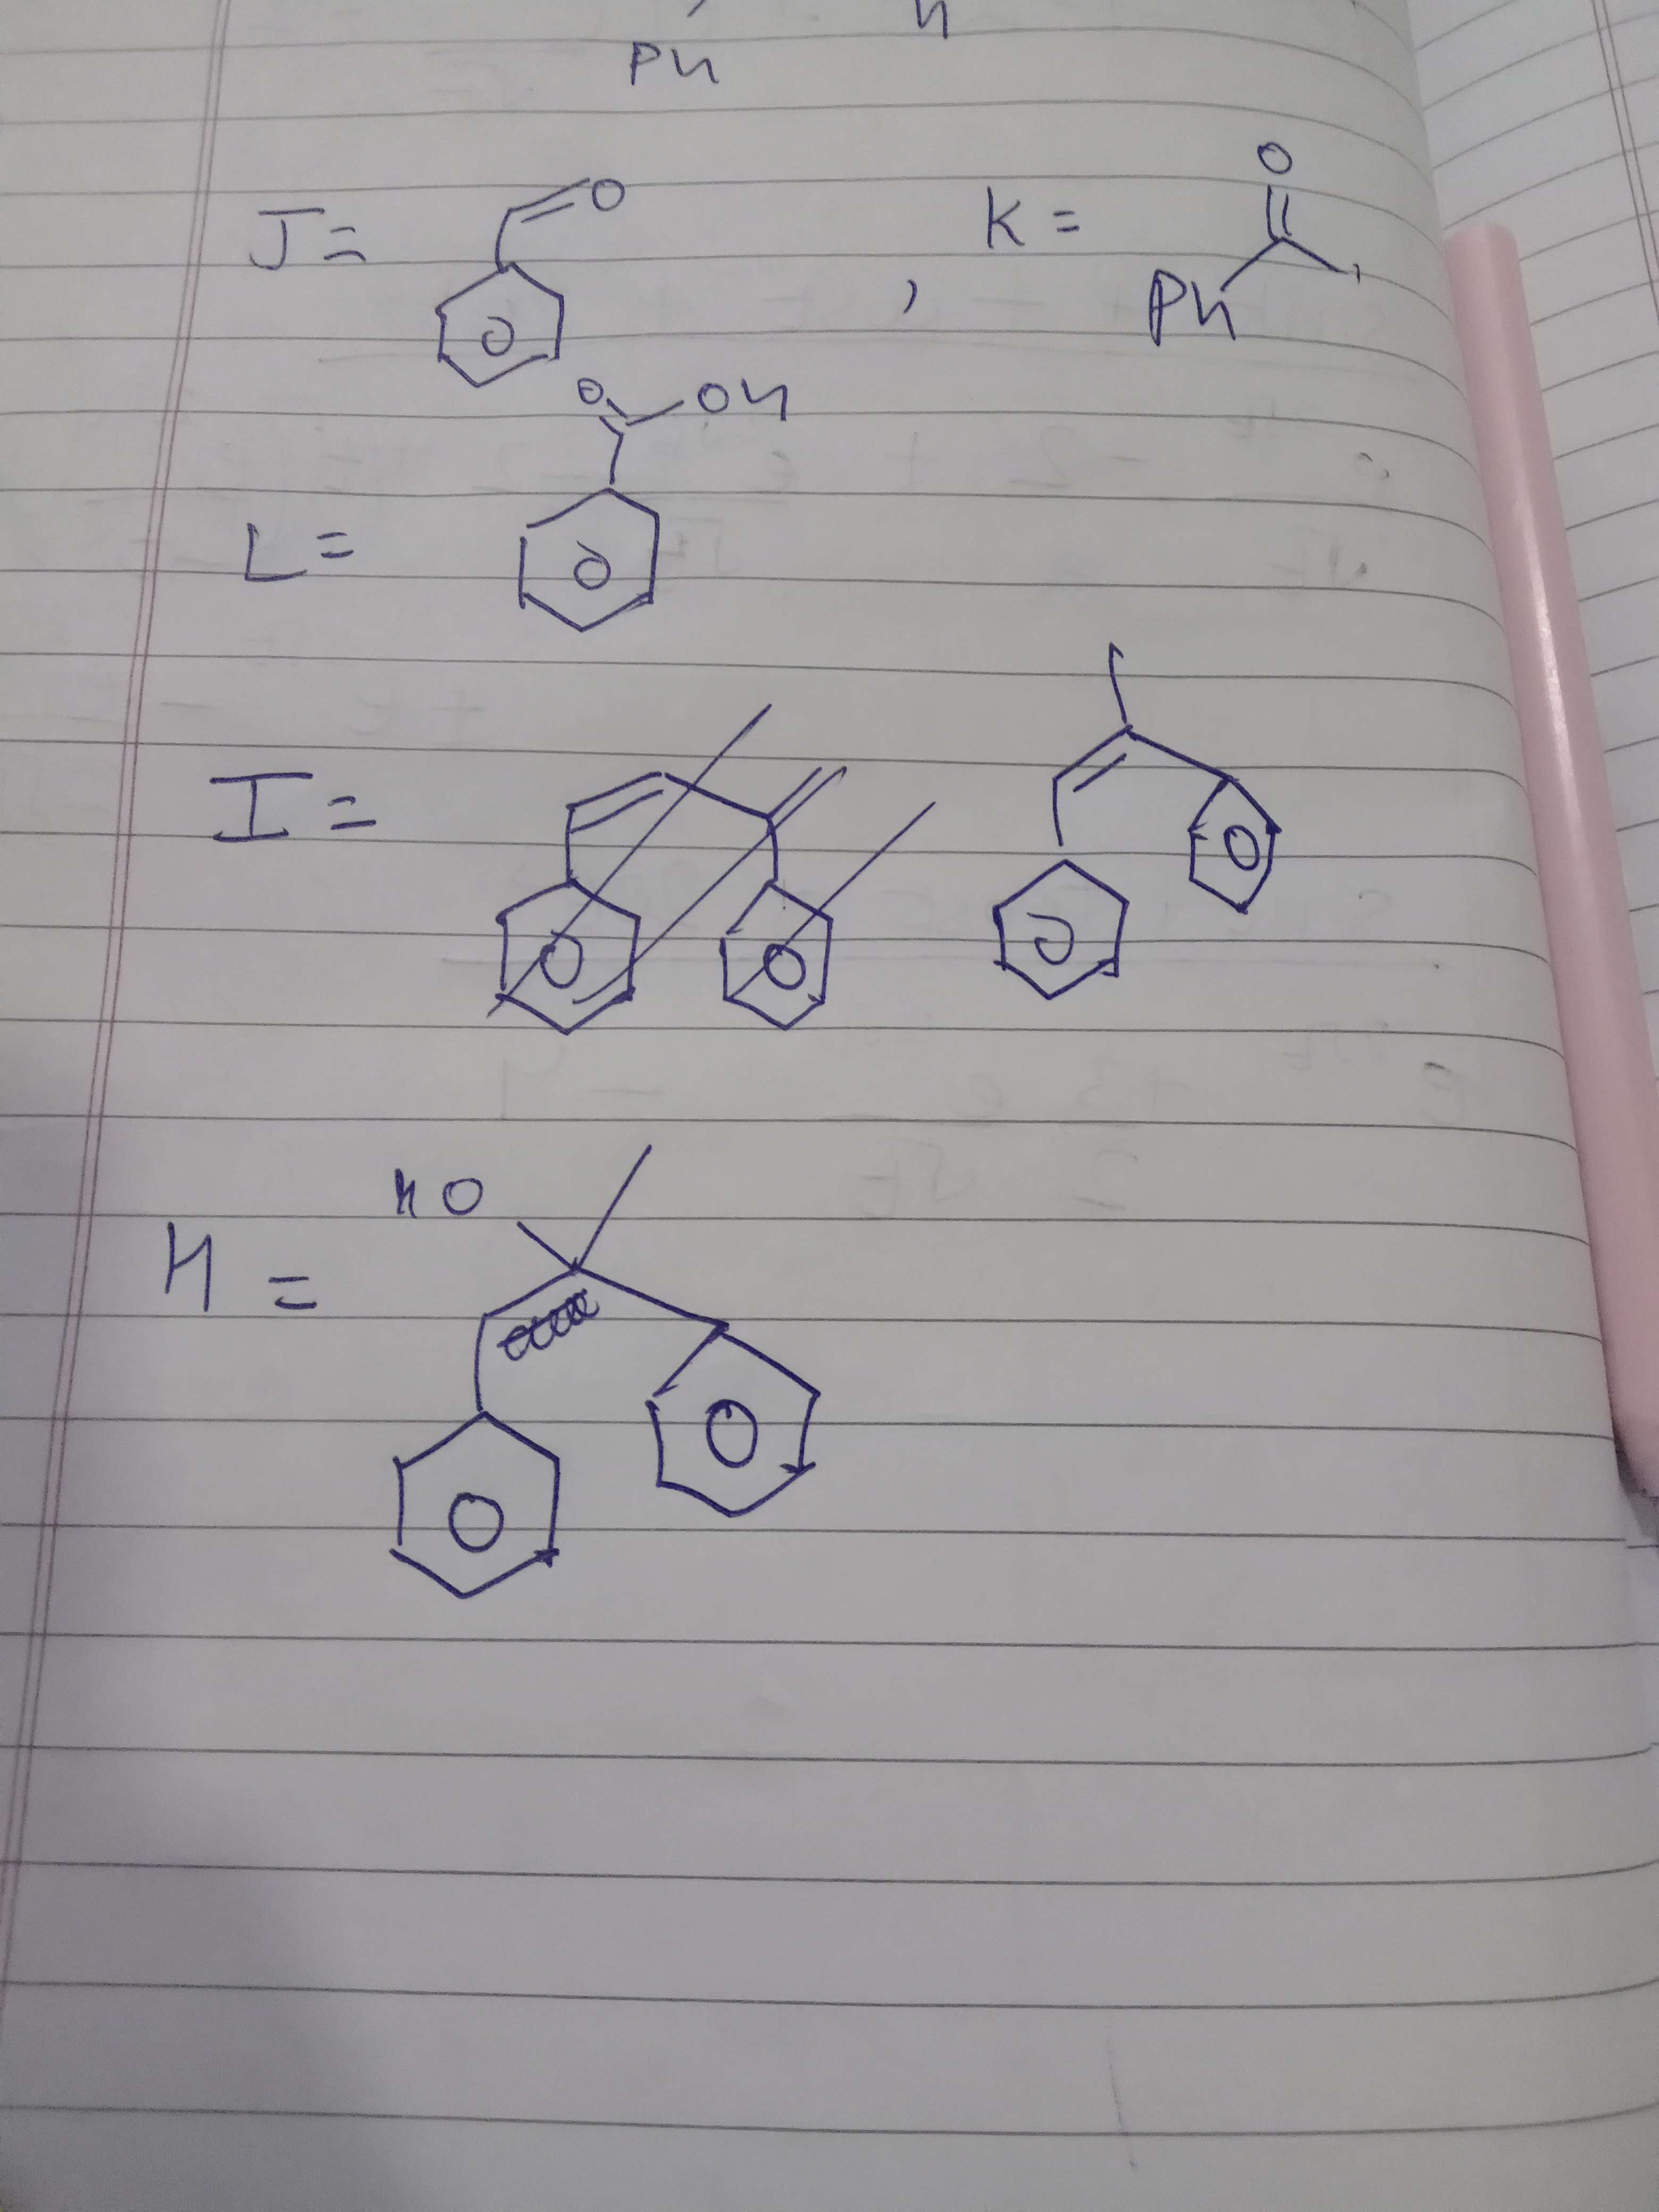 Ph
J= O , K= O Ph
O OH
L=
I=
HO
H =